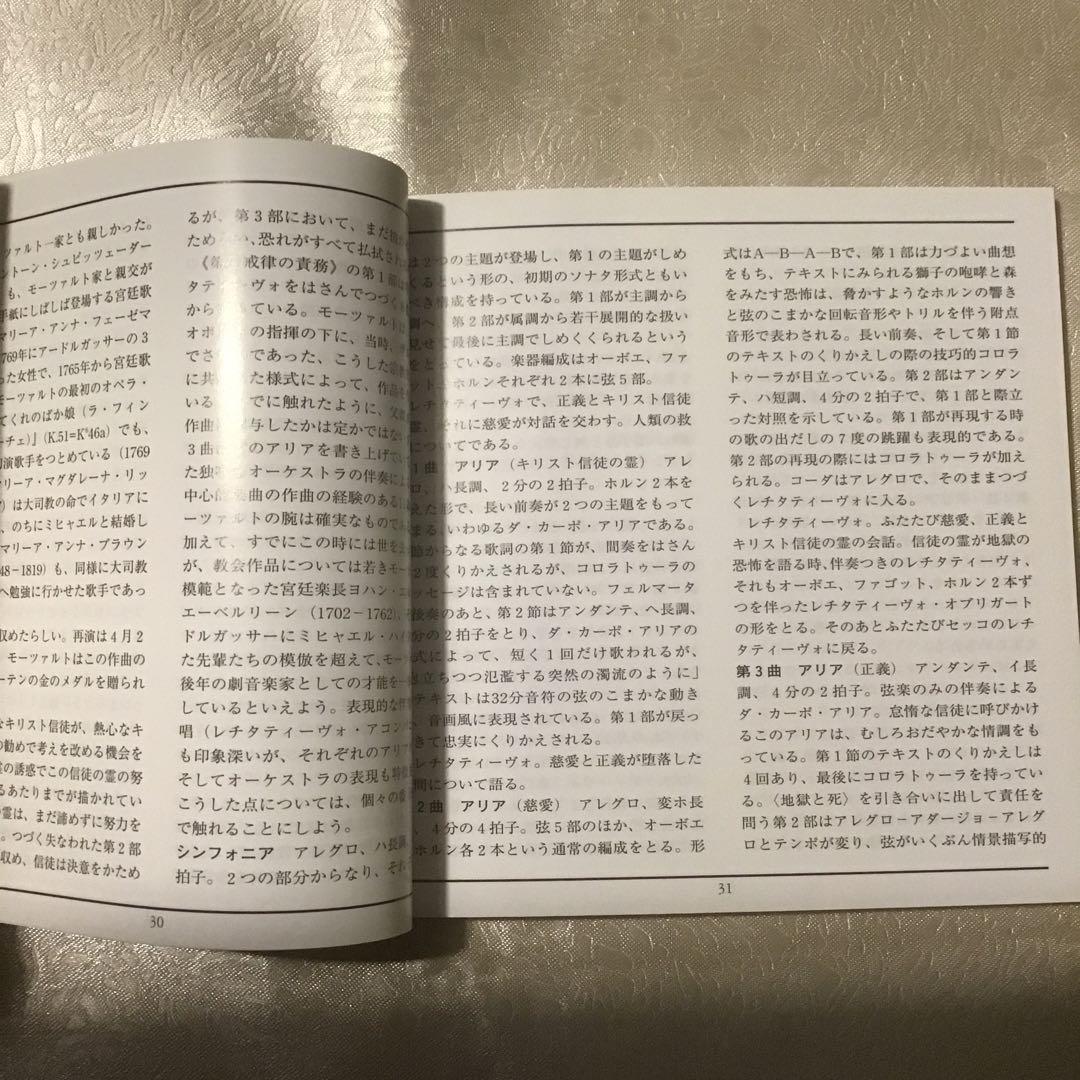 ツァルト一家とも親しかった。
ントーン・シュピッツェーダー
も、モーツァルト家と親交が
手紙にしばしば登場する宮廷歌
マリーア・アンナ・フェーゼマ
1769年にアードルガッサーの3
った女性で、1765年から宮廷歌
モーツァルトの最初のオペラ・
てくれのばか娘（ラ・フィン
ーチェ)」(K.51=K⁶46a) でも、
初演歌手をつとめている（1769
マリーア・マグダレーナ・リッ
) は大司教の命でイタリアに
、のちにミヒャエルと結婚し
マリーア・アンナ・ブラウン
48－1819) も、同様に大司教
へ勉強に行かせた歌手であっ
収めたらしい。再演は4月2
モーツァルトはこの作曲の
ーテンの金のメダルを贈られ
なキリスト信徒が、熱心なキ
の勧めで考えを改める機会を
霊の誘惑でこの信徒の霊の努
るあたりまでが描かれてい
の霊は、まだ諦めずに努力を
。つづく失なわれた第2部
収め、信徒は決意をかため
るが、第3部において、まだ
ため　い、恐れがすべて払拭され
《第　戒律の責務》の第1部は
タテティーヴォをはさんでつづく
から　ている。モーツァルトは
オ　の指揮の下に、当時、
でさ　であった、こうした
に共　た様式によって、作品を
いる　でに触れたように、父
作曲　与したかは定かではない
3曲　のアリアを書き上げて
た独　オーケストラの伴奏によ
中心　楽曲の作曲の経験のある
ーツァルトの腕は確実なものであ
加えて、すでにこの時には世を
が、教会作品については若きモー
模範となった宮廷楽長ヨハン・エ
エーベルリーン（1702－1762)、
ドルガッサーにミヒャエル・ハイ
た先輩たちの模倣を超えて、モー
後年の劇音楽家としての才能を一
しているといえよう。表現的な伴
唱（レチタティーヴォ・アコンパ
も印象深いが、それぞれのアリア
そしてオーケストラの表現も特徴
こうした点については、個々の
で触れることにしよう。
シンフォニア　アレグロ、ハ長調
拍子。2つの部分からなり、それ
30
は2つの主題が登場し、第1の主題がしめ
くるという形の、初期のソナタ形式ともい
べき構成を持っている。第1部が主調から
調へ、第2部が属調から若干展開的な扱い
見せて最後に主調でしめくくられるという
をとっている。楽器編成はオーボエ、ファ
ット、ホルンそれぞれ2本に弦5部。
レチタティーヴォで、正義とキリスト信徒
霊、それに慈愛が対話を交わす。人類の救
についてである。
1曲　アリア（キリスト信徒の霊）　アレ
ロ、ハ長調、2分の2拍子。ホルン2本を
えた形で、長い前奏が2つの主題をもって
まる、いわゆるダ・カーポ・アリアである。
節からなる歌詞の第1節が、間奏をはさん
2度くりかえされるが、コロラトゥーラの
ッセージは含まれていない。フェルマータ
後奏のあと、第2節はアンダンテ、ヘ長調、
分の2拍子をとり、ダ・カーポ・アリアの
式によって、短く1回だけ歌われるが、
泡立ちつつ氾濫する突然の濁流のように」
テキストは32分音符の弦のこまかな動き
、音画風に表現されている。第1部が戻っ
きて忠実にくりかえされる。
レチタティーヴォ。慈愛と正義が堕落した
間について語る。
2曲　アリア（慈愛）　アレグロ、変ホ長
、4分の4拍子。弦5部のほか、オーボエ
ホルン各2本という通常の編成をとる。形
式はA—B—A—Bで、第1部は力づよい曲想
をもち、テキストにみられる獅子の咆哮と森
をみたす恐怖は、脅かすようなホルンの響き
と弦のこまかな回転音形やトリルを伴う附点
音形で表わされる。長い前奏、そして第1節
のテキストのくりかえしの際の技巧的コロラ
トゥーラが目立っている。第2部はアンダン
テ、ハ短調、4分の2拍子で、第1部と際立
った対照を示している。第1部が再現する時
の歌の出だしの7度の跳躍も表現的である。
第2部の再現の際にはコロラトゥーラが加え
られる。コーダはアレグロで、そのままつづ
くレチタティーヴォに入る。
レチタティーヴォ。ふたたび慈愛、正義と
キリスト信徒の霊の会話。信徒の霊が地獄の
恐怖を語る時、伴奏つきのレチタティーヴォ、
それもオーボエ、ファゴット、ホルン2本ず
つを伴ったレチタティーヴォ・オブリガート
の形をとる。そのあとふたたびセッコのレチ
タティーヴォに戻る。
第3曲　アリア（正義）　アンダンテ、イ長
調、4分の2拍子。弦楽のみの伴奏による
ダ・カーポ・アリア。怠惰な信徒に呼びかけ
るこのアリアは、むしろおだやかな情調をも
っている。第1節のテキストのくりかえしは
4回あり、最後にコロラトゥーラを持ってい
る。〈地獄と死〉を引き合いに出して責任を
問う第2部はアレグロ－アダージョ－アレグ
ロとテンポが変り、弦がいくぶん情景描写的
31